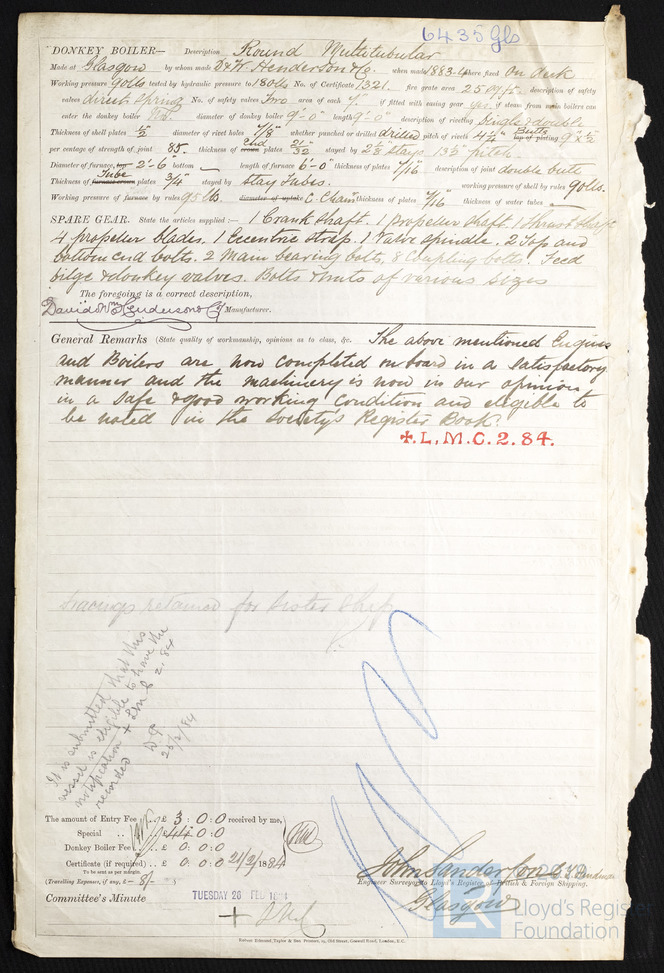 6435 Gls
DONKEY BOILER— Description Round Multitubular
Made at Glasgow by whom made D & W. Henderson & Co. when made 1883-4 where fixed on deck
Working pressure 90 lbs tested by hydraulic pressure to 180 lbs No. of Certificate 1321. fire grate area 25 sq. ft. description of safety
valves direct spring No. of safety valves Two area of each 7" if fitted with easing gear yes. if steam from main boilers can
enter the donkey boiler No. diameter of donkey boiler 9'-0" length 9'-0" description of riveting Single & double
Thickness of shell plates 1/2 diameter of rivet holes 7/8" whether punched or drilled drilled pitch of rivets Butts lap of plating 9" x 1/2
per centage of strength of joint 85. thickness of crown End plates 21/32 stayed by stays 13 1/2" pitch.
Diameter of furnace, top 2'-6" bottom — length of furnace 6'-0" thickness of plates 7/16" description of joint double butt
Thickness of furnace crown Tube plates 3/4" stayed by Stay Tubes. working pressure of shell by rules 90 lbs.
Working pressure of furnace by rules 95 lbs. diameter of uptake C. Cham thickness of plates 7/16 thickness of water tubes —
SPARE GEAR. State the articles supplied:— 1 Crank Shaft. 1 Propeller Shaft. 1 Thrust Shaft
4 propeller blades. 1 Eccentric strap. 1 Valve Spindle. 2 Top and
bottom end bolts. 2 Main bearing bolts, 8 Coupling bolts. Feed
bilge & donkey valves. Bolts & nuts of various sizes
The foregoing is a correct description,
David & Wm Henderson & Co Manufacturer.
General Remarks (State quality of workmanship, opinions as to class, &c. The above mentioned Engines
and Boilers are now completed onboard in a satisfactory
manner and the machinery is now in our opinion
in a safe & good working condition and eligible to
be noted in the Society's Register Book.
+. L. M. C. 2. 84.
Tracings retained for Sister Ship
It is submitted that this
vessel is eligible to have the
notification + LMC 2. 84
recorded
25/2/84
The amount of Entry Fee .. £ 3 : 0 : 0 received by me,
Special .. £ 44 : 0 : 0
Donkey Boiler Fee .. £ 0 : 0 : 0
Certificate (if required) .. £ 0 : 0 : 0 21/2/1884
To be sent as per margin.
(Travelling Expenses, if any, £ — 8/- )
John Sanderson
Engineer Surveyor to Lloyd's Register of British & Foreign Shipping.
Glasgow
Committee's Minute TUESDAY 26 FEB 1884
+ LMC
Lloyd's Register
Foundation